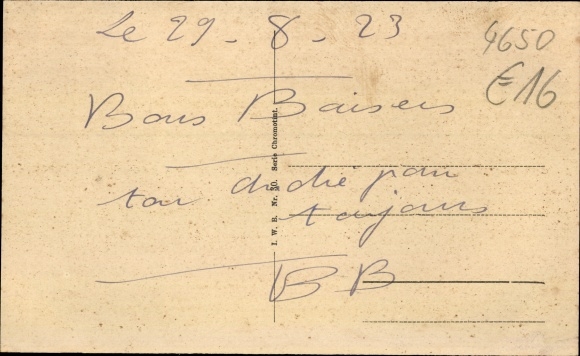 Le 29 - 8 - 23
4650
€16
Bons Baisers
ton dédé pour
toujours
BB
I. W. B. Nr. 20. Serie Chromotint.